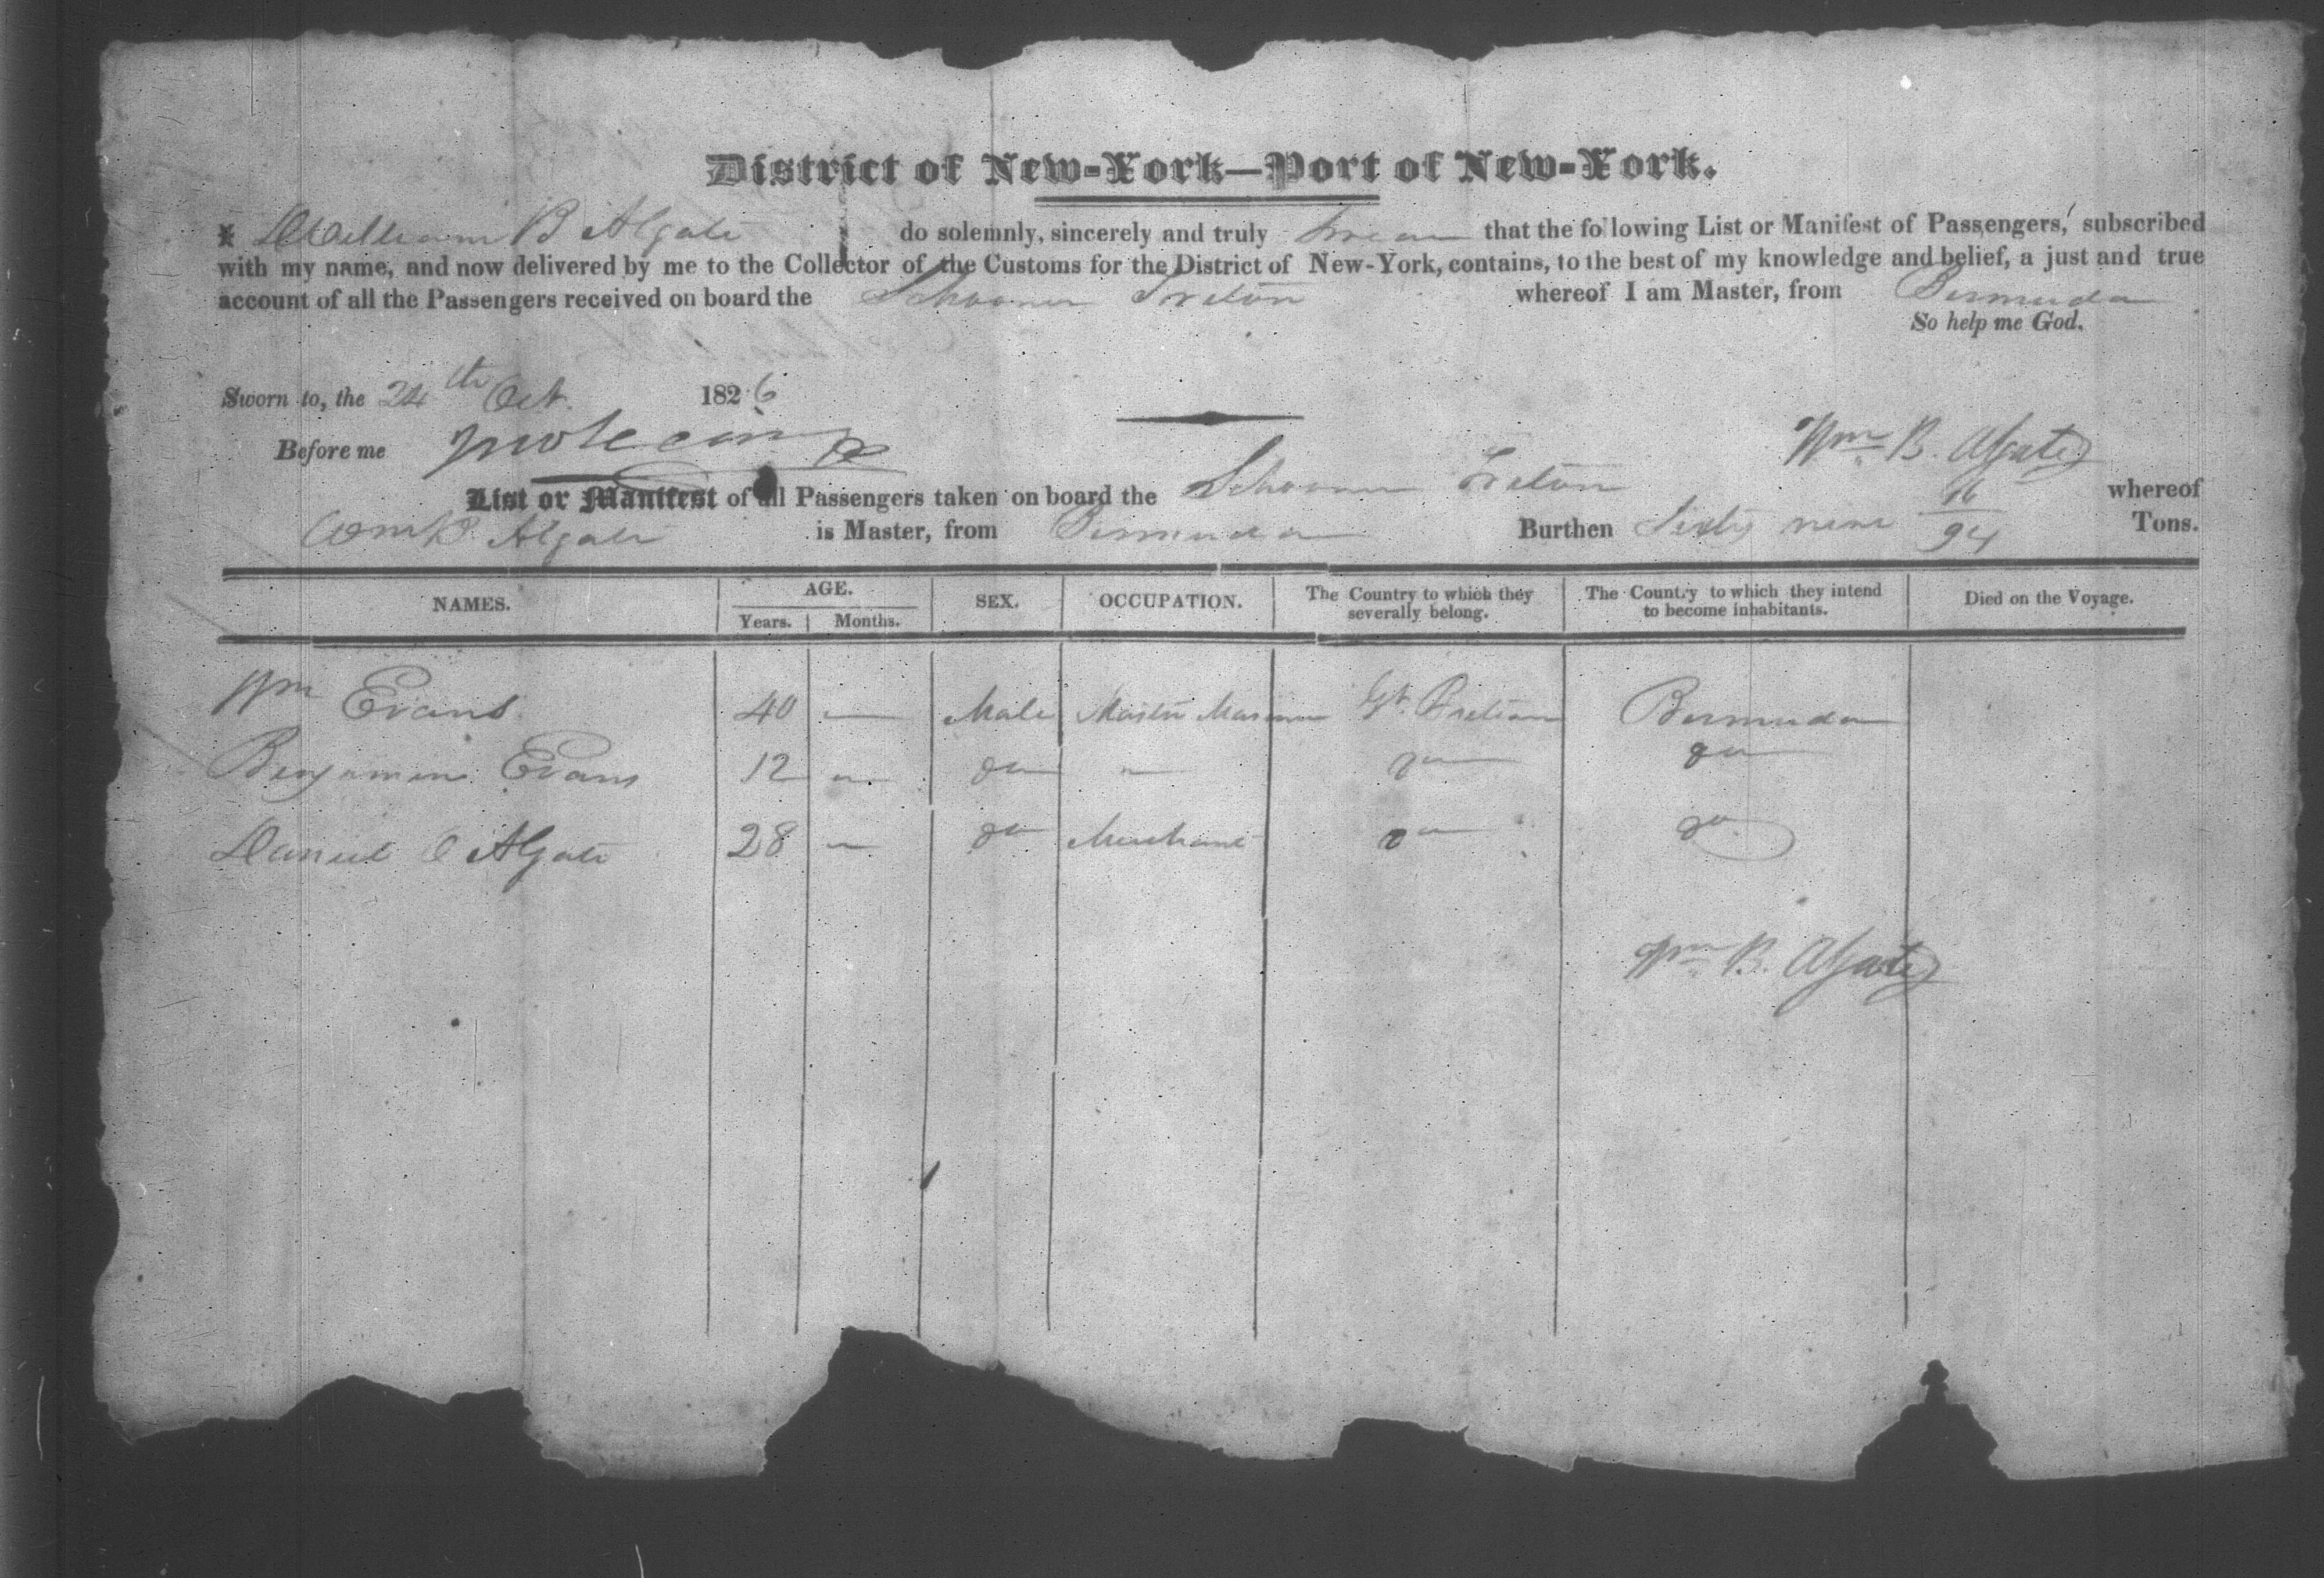 District of New-York—Port of New-York.
I William B Algate do solemnly, sincerely and truly swear that the following List or Manifest of Passengers, subscribed
with my name, and now delivered by me to the Collector of the Customs for the District of New-York, contains, to the best of my knowledge and belief, a just and true
account of all the Passengers received on board the Schooner whereof I am Master, from Bermuda
So help me God.
Sworn to, the 24th Oct. 1826
Before me
Wm B. Algate
List or Manifest of all Passengers taken on board the Schooner whereof
Wm B. Algate is Master, from Bermuda Burthen Sixty nine 16/94 Tons.
NAMES. AGE. SEX. OCCUPATION. The Country to which they severally belong. The Country to which they intend to become inhabitants. Died on the Voyage.
Years. Months.
Wm Evans 40 — Male Master Mariner Gt. Britain Bermuda
Benjamin Evans 12 — do — do do
Daniel Algate 28 — do Merchant do do
Wm B. Algate